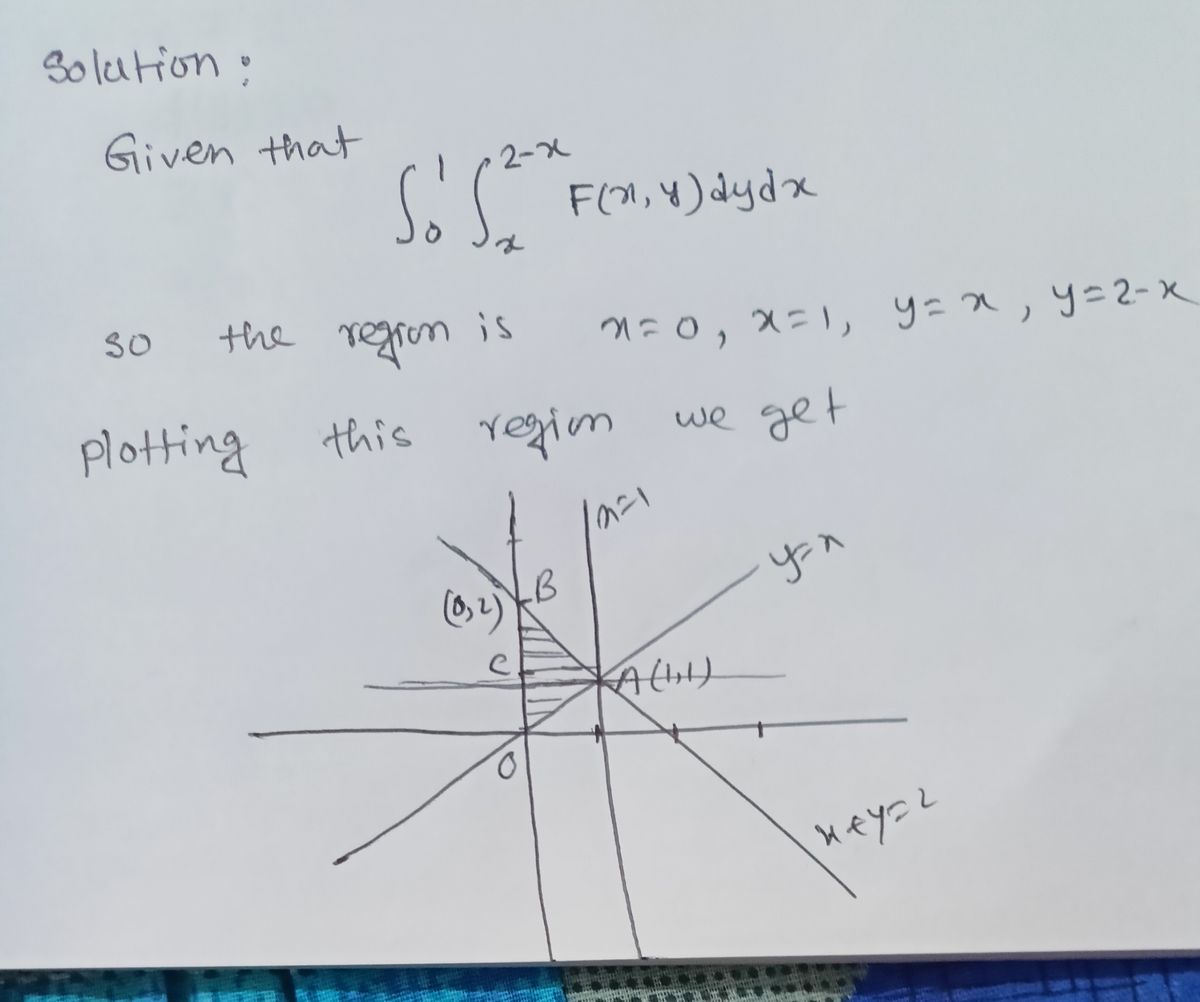 Solution :
Given that ∫₀¹ ∫ₓ^{2-x} F(x, y) dy dx
so the region is x=0, x=1, y=x, y=2-x
plotting this region we get
x=1
y=x
(0,2) B
C
A(1,1)
O
x+y=2